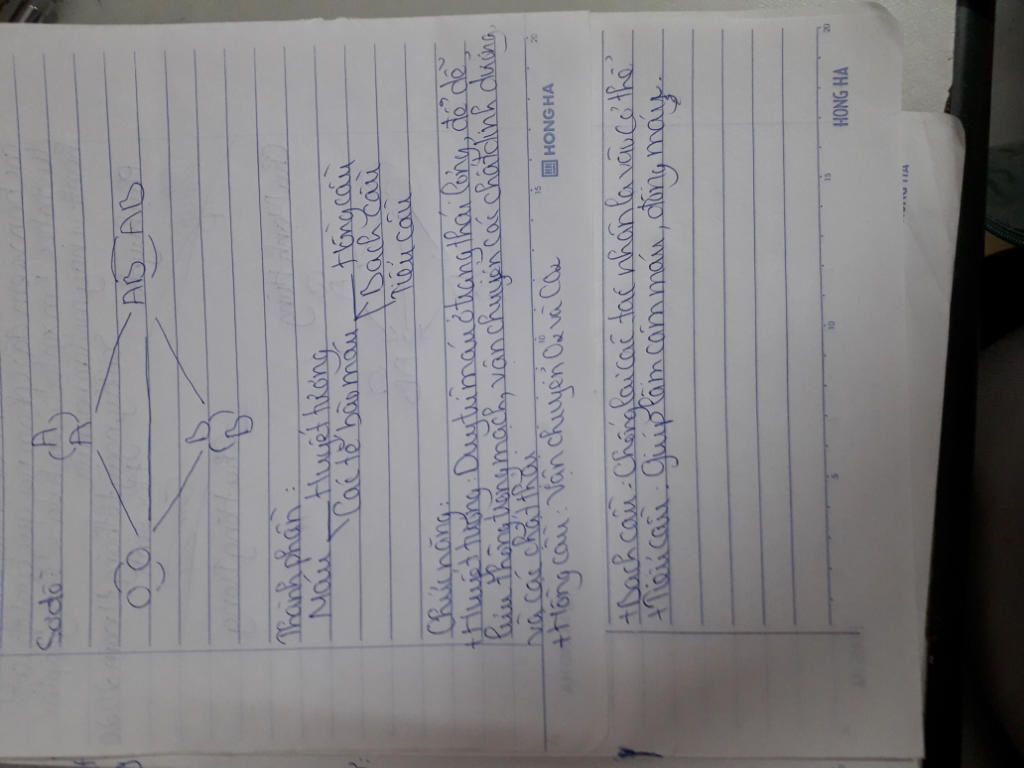 Sơ đồ:
A
A
O O
AB AB
B
B
Thành phần:
Máu
Huyết tương
Các tế bào máu
Hồng cầu
Bạch cầu
Tiểu cầu
Chức năng:
+ Huyết tương: Duy trì máu ở trạng thái lỏng, để dễ
lưu thông trong mạch, vận chuyển các chất dinh dưỡng,
và các chất thải
+ Hồng cầu: Vận chuyển O2 và CO2
HONG HA
+ Bạch cầu: Chống lại các tác nhân lạ vào cơ thể
+ Tiểu cầu: Giúp làm cầm máu, đông máy.
HONG HA